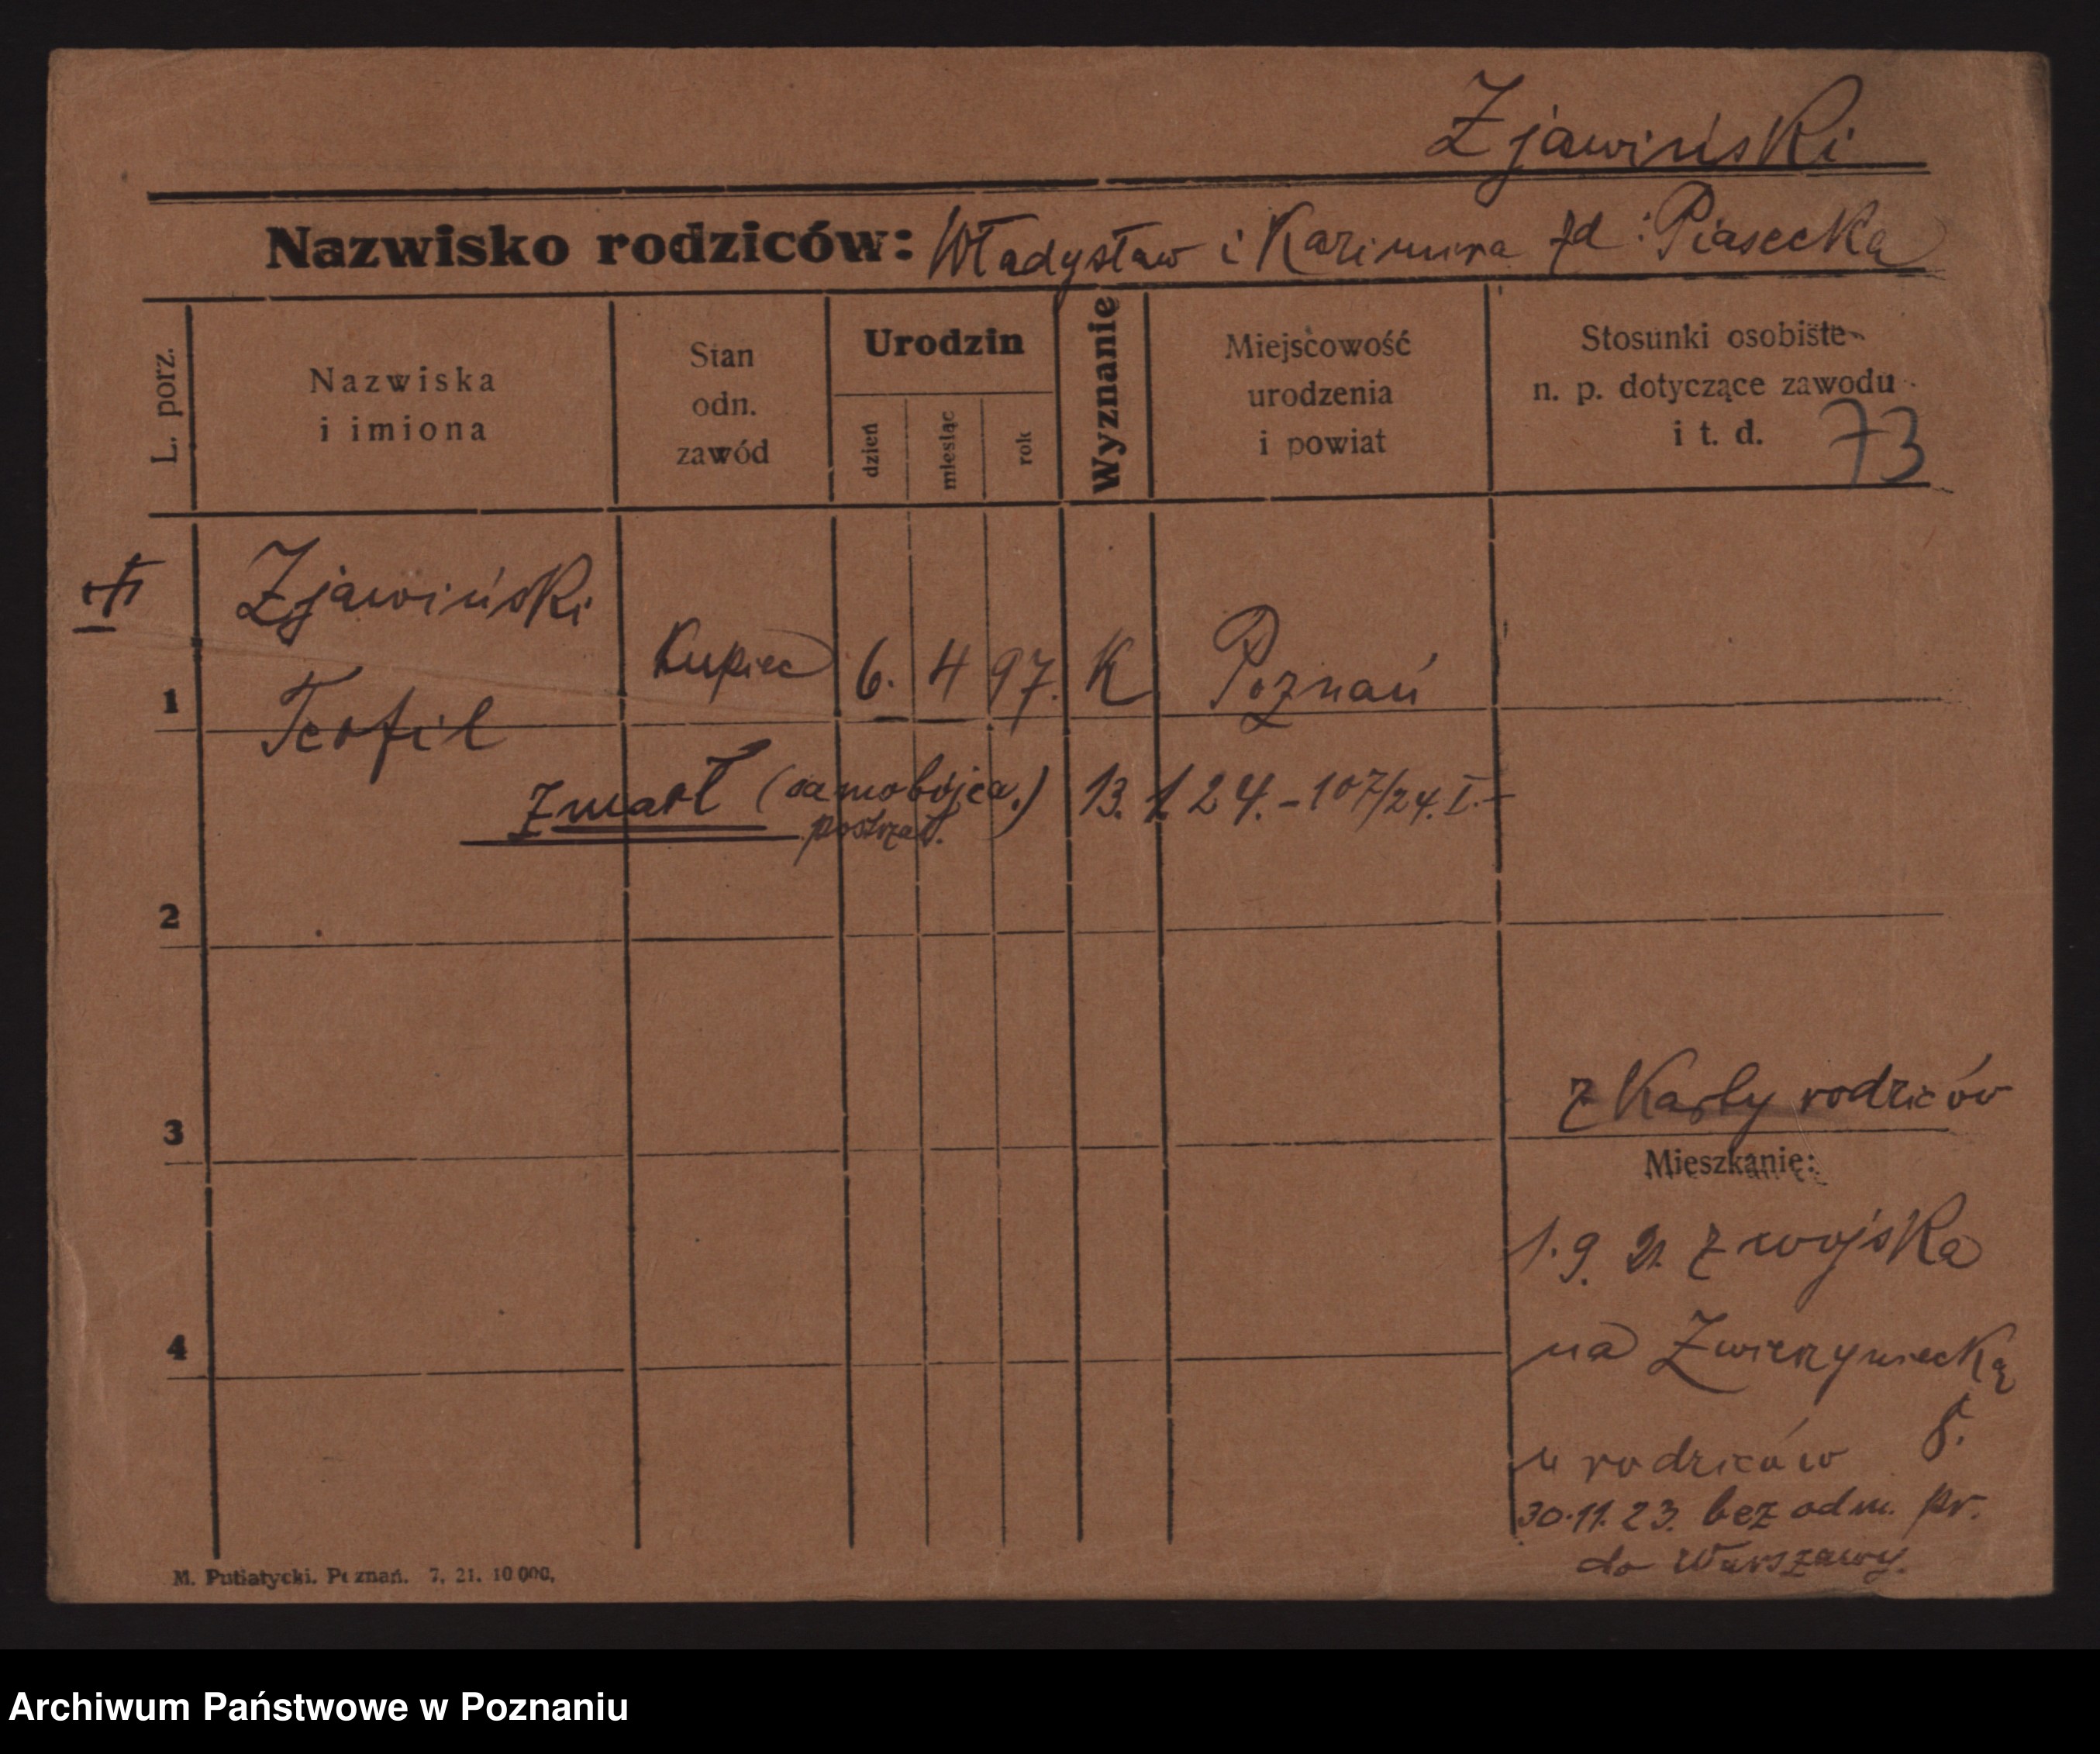 Zjawiński
Nazwisko rodziców: Władysław i Kazimira zd: Piasecka
L. porz.
Nazwiska
i imiona
Stan
odn.
zawód
Urodzin
dzień
miesiąc
rok
Wyznanie
Miejscowość
urodzenia
i powiat
Stosunki osobiste
n. p. dotyczące zawodu
i t. d.
73
Zjawiński
1 Teofil Kupiec 6. 4 97. K Poznań
zmarł (samobójca.) 13. 1. 24. - 107/24. I. -
postrzał.
2
3
z Karty rodziców
Mieszkanie:
1. 9. 21. z wojska
na Zwierzyniecką
8.
u rodziców
30.11.23. bez odm. pr.
do Warszawy.
4
M. Putiatycki. Poznań. 7. 21. 10 000.
Archiwum Państwowe w Poznaniu